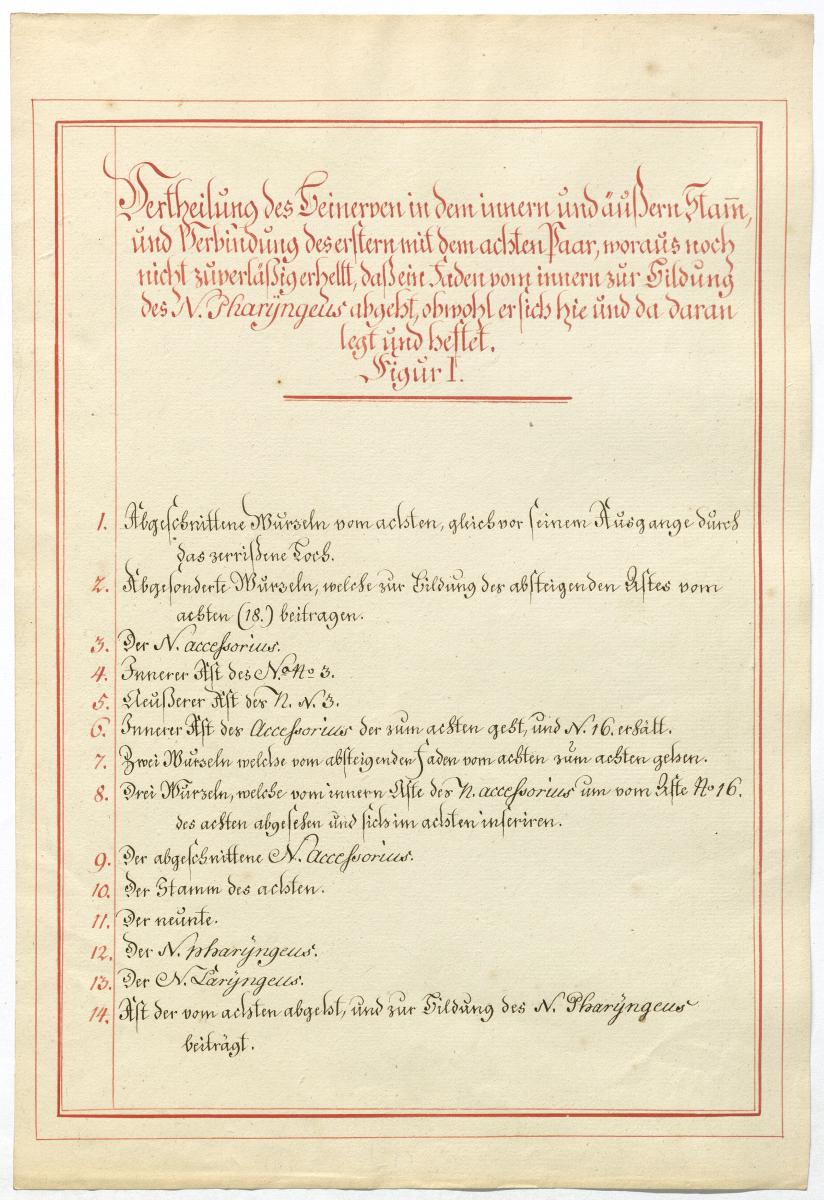 Vertheilung des Beinerven in dem innern und äußern Stam̅,
und Verbindung des erstern mit dem achten Paar, woraus noch
nicht zuverläßig erhellt, daß ein Faden vom innern zur Bildung
des N. Pharÿngeus abgeht, obwohl er sich hie und da daran
legt und heftet.
Figur I.
1. Abgeschnittene Wurzeln vom achten, gleich vor seinem Ausgange durch
das zerrißene Loch.
2. Abgesonderte Wurzeln, welche zur Bildung des absteigenden Astes vom
achten (18.) beitragen.
3. Der N. accessorius.
4. Innerer Ast des N. No 3.
5. Aeußerer Ast des N. N. 3.
6. Innerer Ast des Accessorius der zum achten geht, und N. 16. erhält.
7. Zwei Wurzeln welche vom absteigenden Faden vom achten zum achten gehen.
8. Drei Wurzeln, welche vom innern Aste des N. accessorius um vom Aste No 16.
des achten abgesehen und sich im achten inseriren.
9. Der abgeschnittene N. Accessorius.
10. Der Stamm des achten.
11. Der neunte.
12. Der N. pharÿngeus.
13. Der N. Larÿngeus.
14. Ast der vom achten abgeht, und zur Bildung des N. Pharÿngeus
beiträgt.